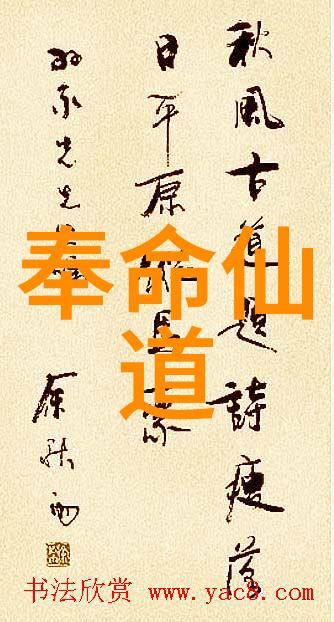 秋風古道題詩瘦落
日平原
先生
余秋雨
奉命仙
道
书法欣赏 www.yac8.com